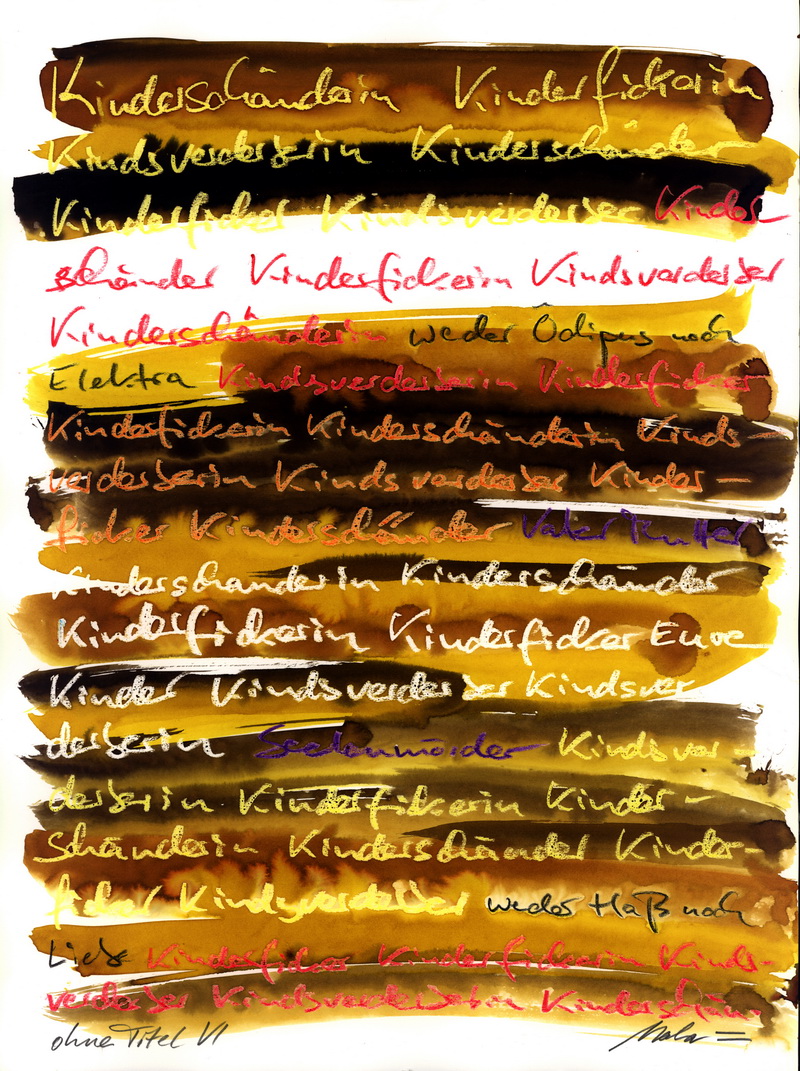 Kinderschänderin Kinderfickerin
Kindsverderberin Kinderschänder
Kinderficker Kindsverderber Kinder-
schänder Kinderfickerin Kindsverderber
Kinderschänderin weder Ödipus noch
Elektra Kindsverderberin Kinderficker
Kinderfickerin Kinderschänderin Kinds-
verderberin Kindsverderber Kinder-
ficker Kinderschänder Vater Mutter
Kinderschanderin Kinderschänder
Kinderfickerin Kinderficker Eure
Kinder Kindsverderber Kindsver
derberin Seelenmörder Kindsver-
derberin Kinderfickerin Kinder-
schänderin Kinderschänder Kinder-
ficker Kindsverderber weder Haß noch
Liebe Kinderficker Kinderfickerin Kinds-
verderber Kindsverderberin Kinderschän-
ohne Titel VI